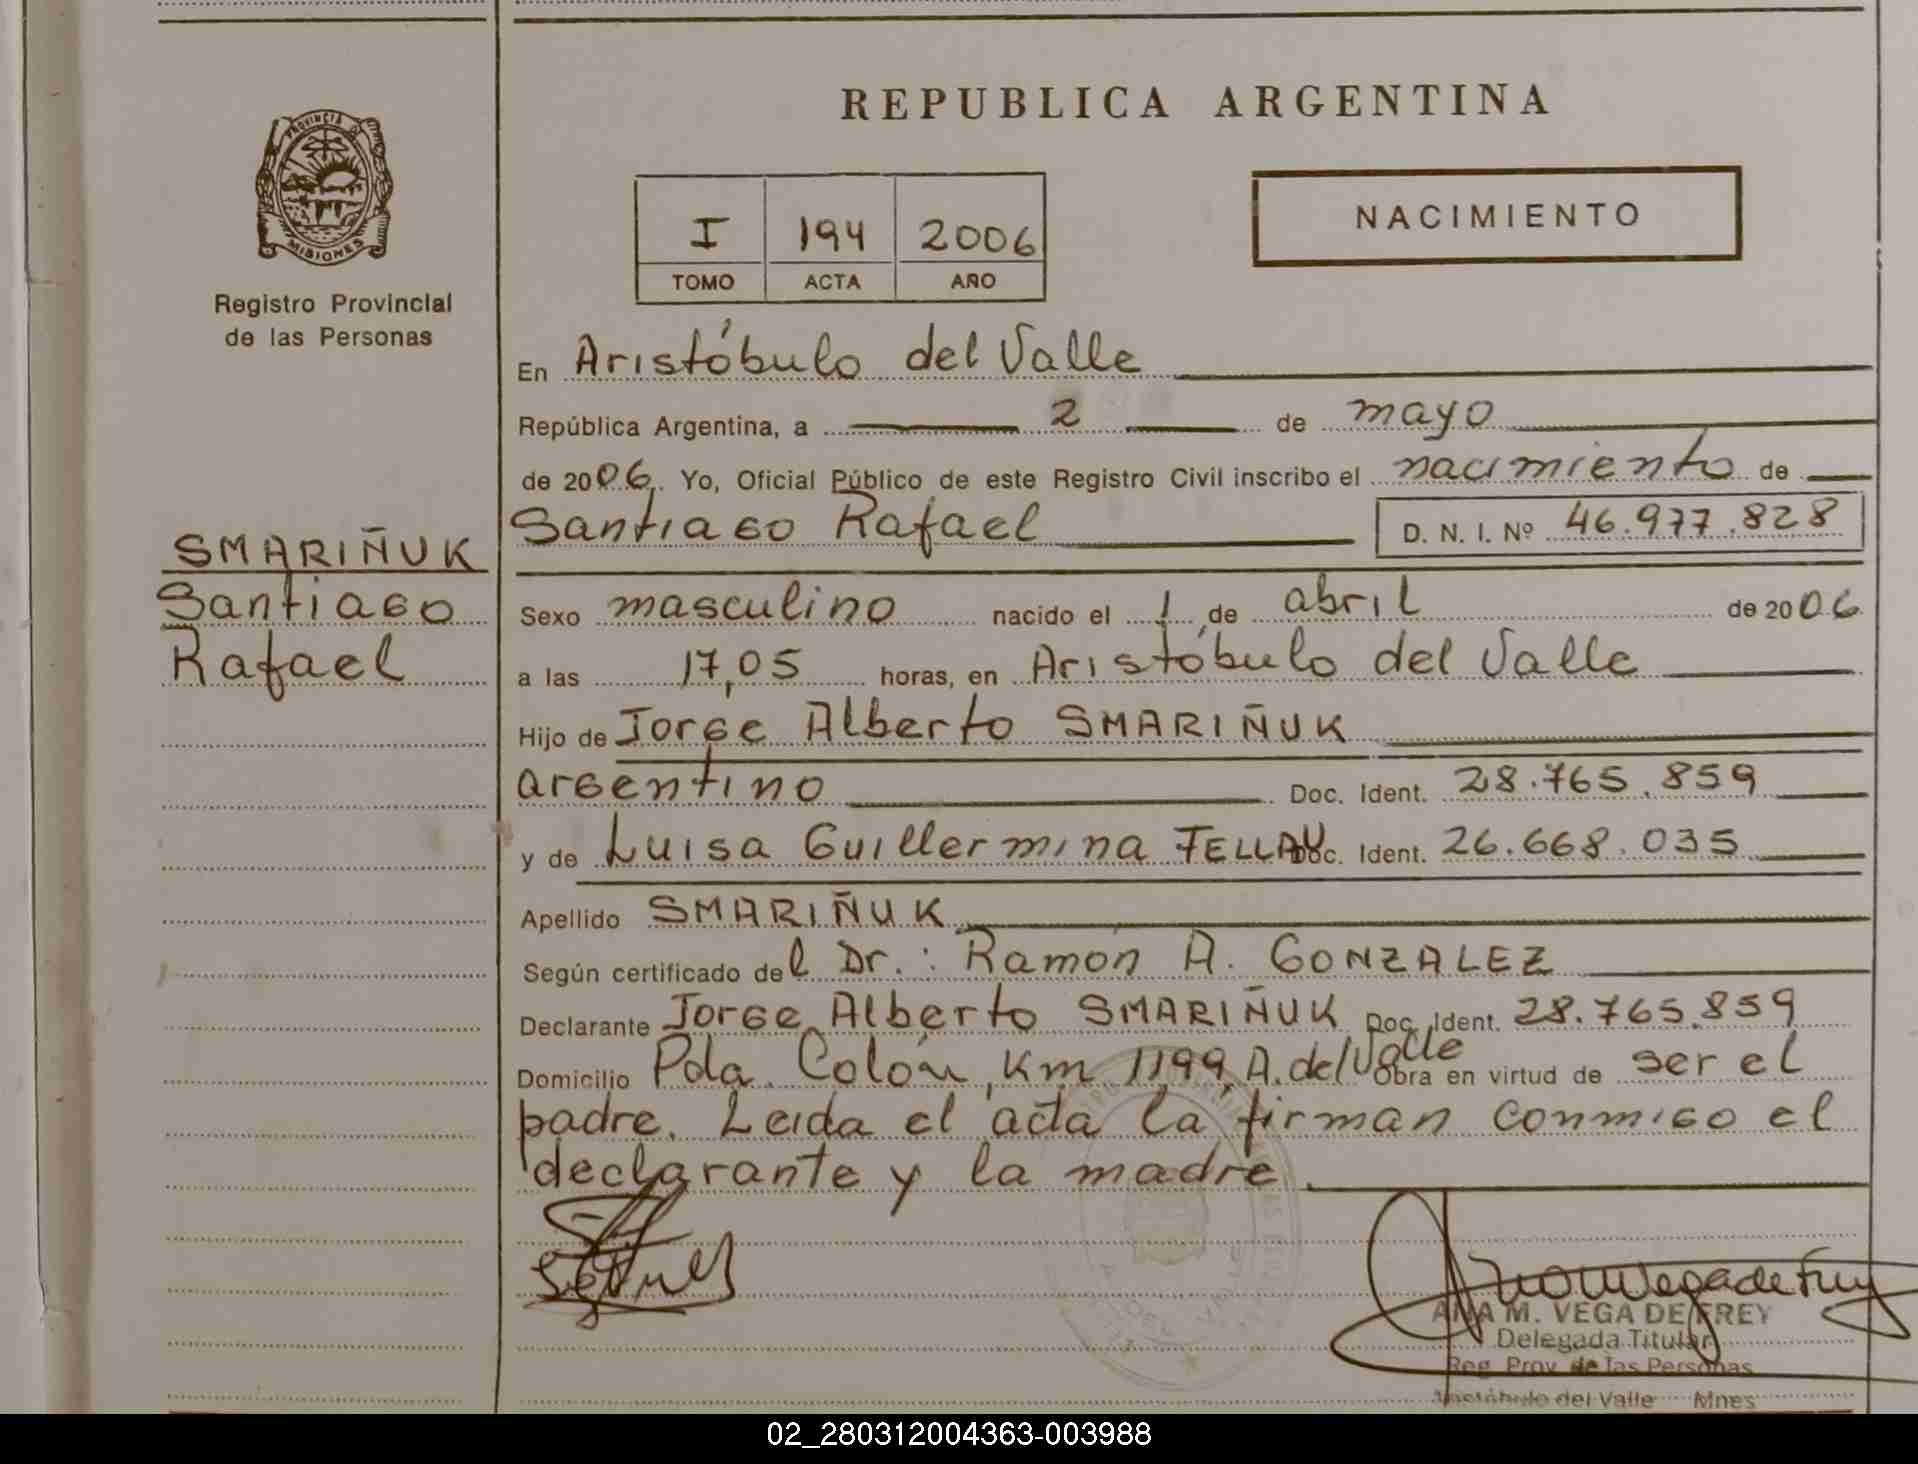 REPUBLICA ARGENTINA
PROVINCIA DE
MISIONES
Registro Provincial
de las Personas
I 194 2006
TOMO ACTA AÑO
NACIMIENTO
En Aristóbulo del Valle
República Argentina, a 2 de mayo
de 2006. Yo, Oficial Público de este Registro Civil inscribo el nacimiento de
Santiago Rafael D. N. I. Nº 46.977.828
SMARIÑUK
Santiago
Rafael
Sexo masculino nacido el 1 de abril de 2006
a las 17,05 horas, en Aristóbulo del Valle
Hijo de Jorge Alberto SMARIÑUK
argentino Doc. Ident. 28.765.859
y de Luisa Guillermina FELLAY Doc. Ident. 26.668.035
Apellido SMARIÑUK
Según certificado del Dr.: Ramón A. GONZALEZ
Declarante Jorge Alberto SMARIÑUK Doc. Ident. 28.765.859
Domicilio Pda. Colón, Km 1199, A. del Valle Obra en virtud de ser el
padre. Leida el acta la firman conmigo el
declarante y la madre.
ANA M. VEGA DE FREY
Delegada Titular
Reg. Prov. de las Personas
Aristóbulo del Valle Mnes
02_280312004363-003988